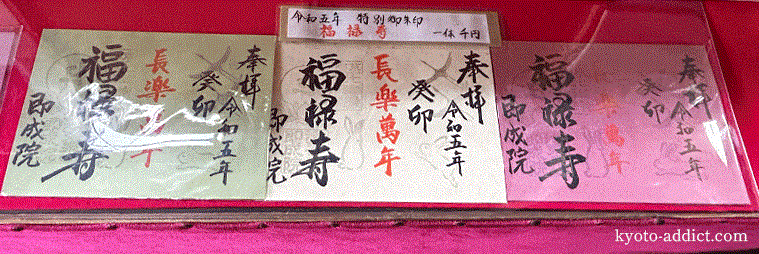 令和五年 特別御朱印
福禄寿 一体 千円
奉拝
令和五年
癸卯
長樂萬年
福禄寿
即成院
奉拝
令和五年
癸卯
長樂萬年
福禄寿
即成院
奉拝
令和五年
癸卯
長樂
福禄寿
即成院
kyoto-addict.com